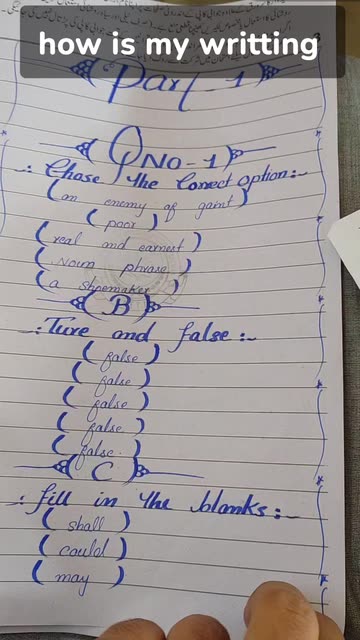 how is my writting
Part-1
QNO-1
:. Chose the Corect option:-
(an enemy of gaint)
(poor)
(real and earnest)
(Noun phrase)
(a shoemaker)
(B)
:. Ture and false:-
(false)
(false)
(false)
(false)
(false.)
(C)
:. fill in the blanks:-
(shall)
(could)
(may)